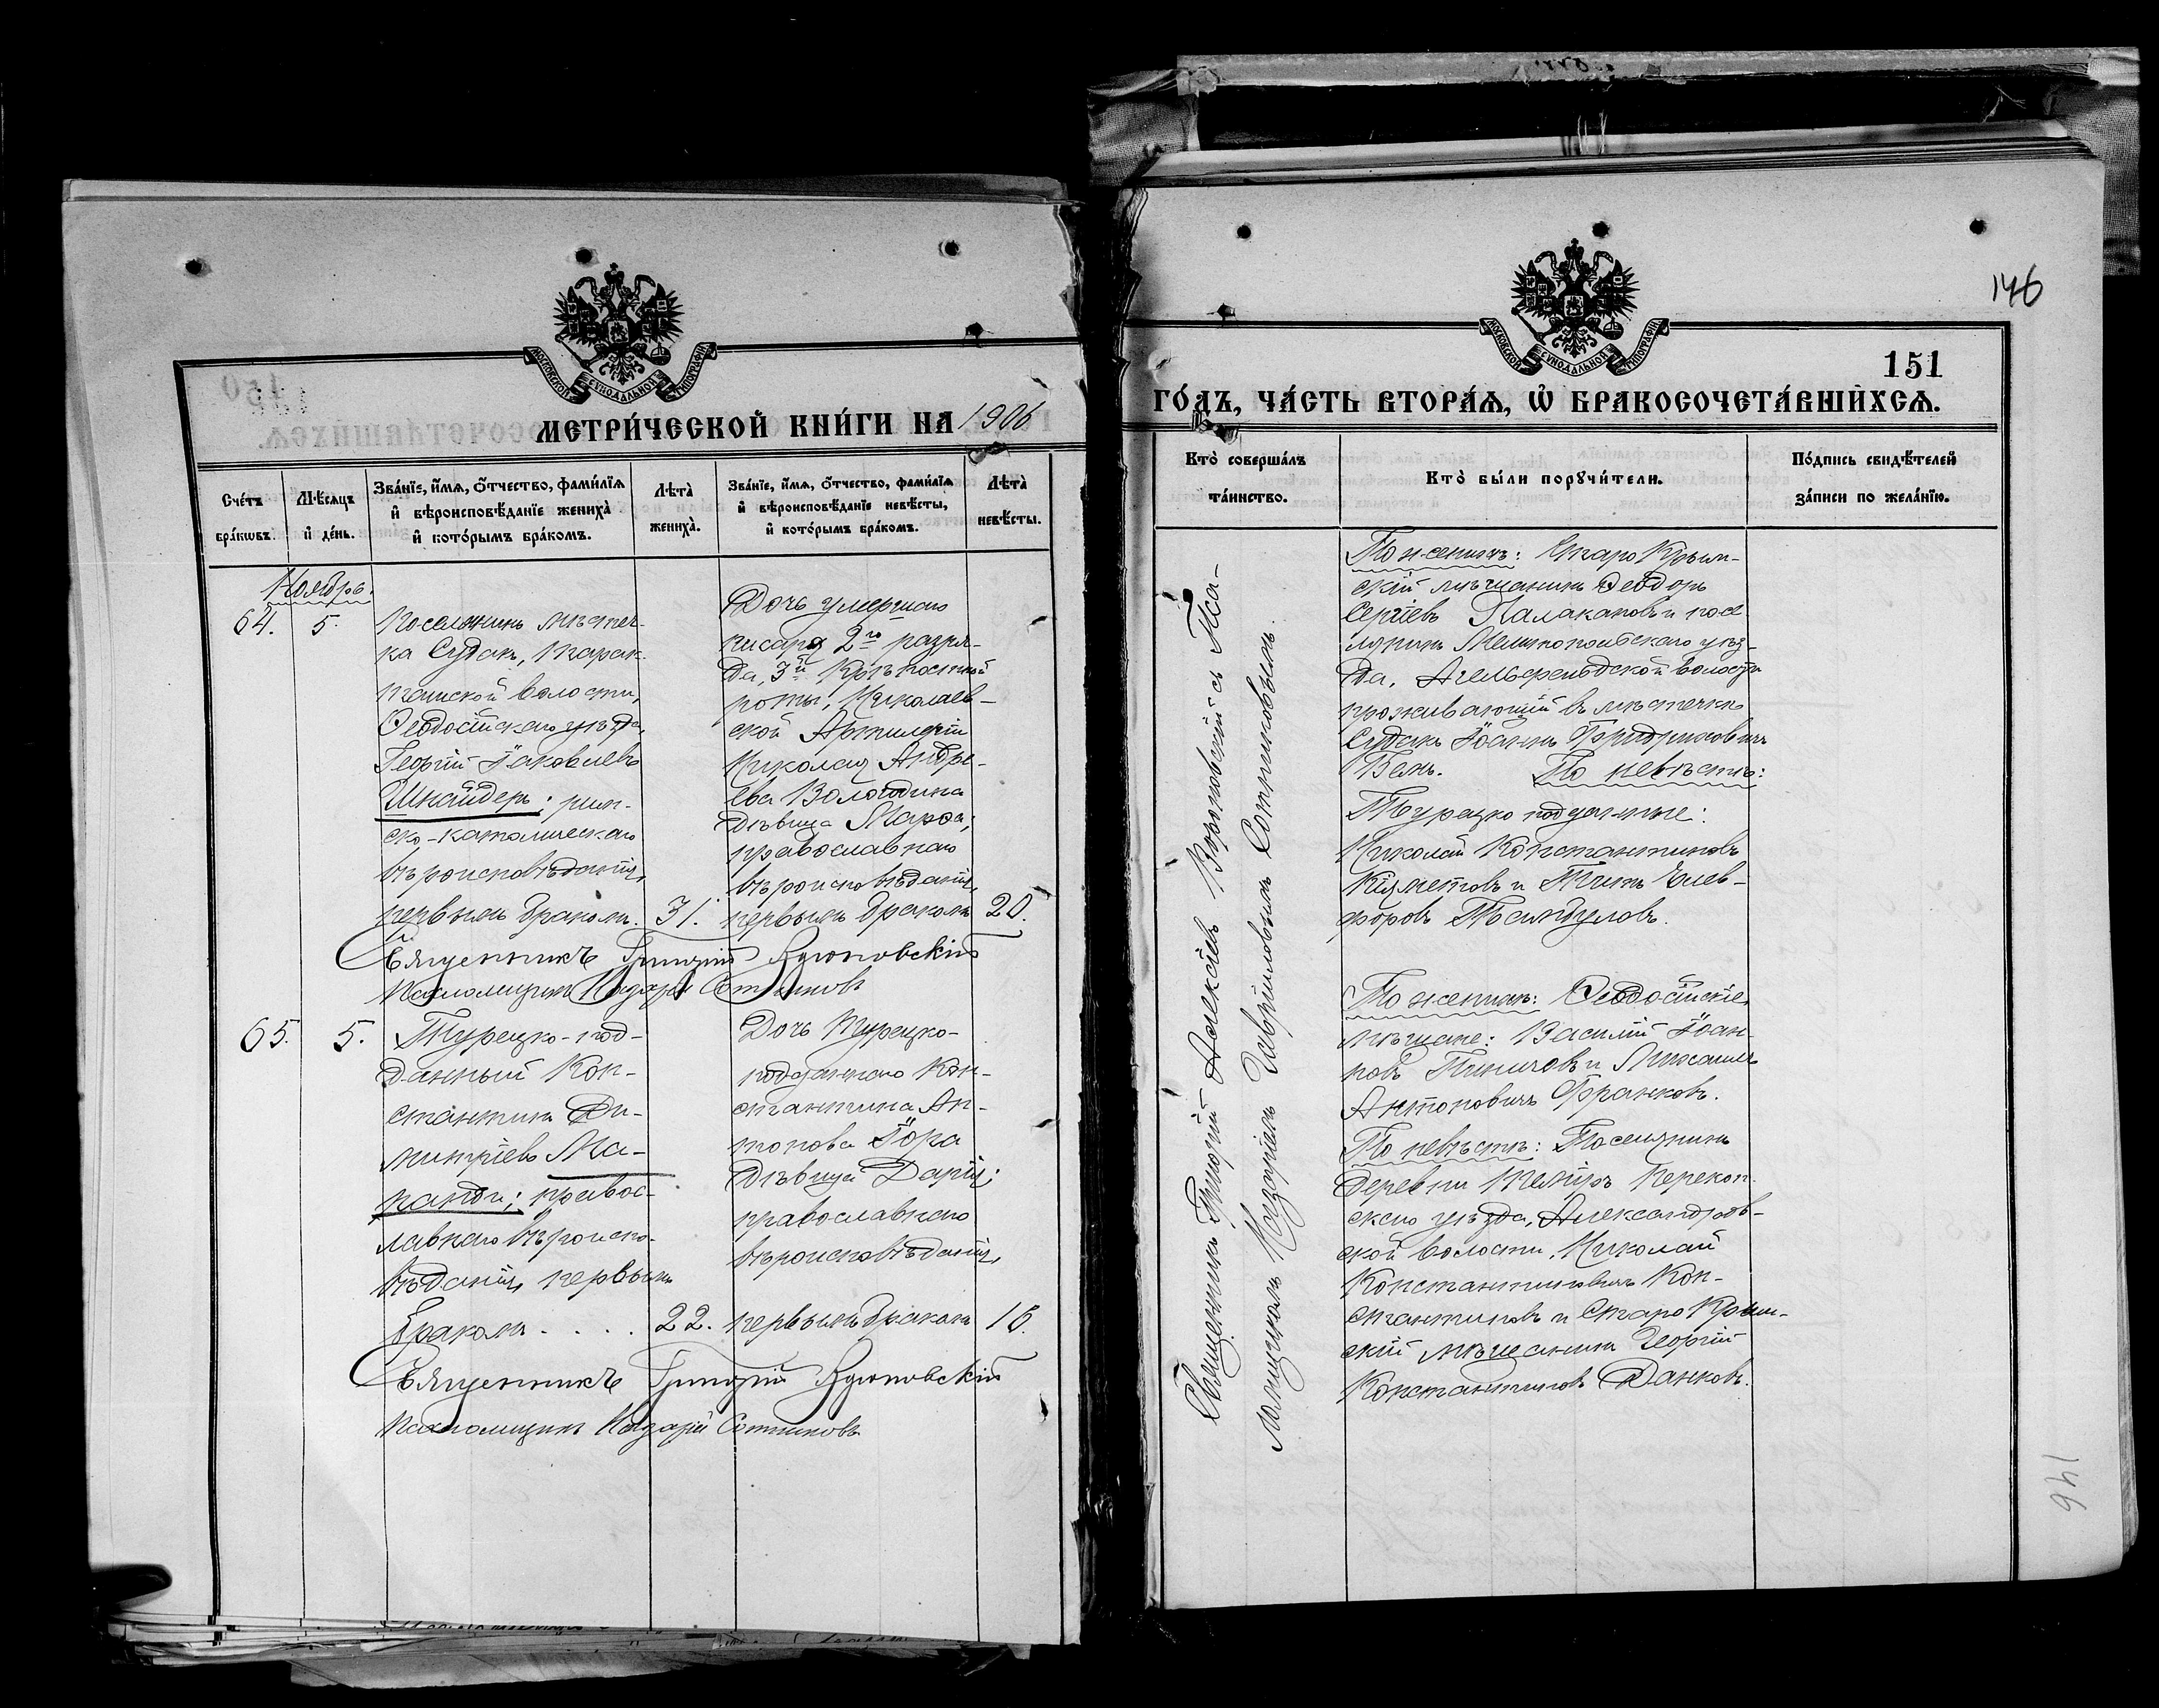 МОСКОВСКОЙ СѴНОДАЛЬНОЙ ТИПОГРАФІИ.
МЕТРИ́ЧЕСКОЙ КНИ́ГИ НА 1906
Сче́тъ бра́кωвъ.
Мѣ́сяцъ и҆ де́нь.
Зва́нїе, и҆́мѧ, ѻ҆́тчество, фами́лїѧ
и҆ вѣроисповѣ́данїе женихà
и҆ кото́рымъ бра́комъ.
Лѣтà женихà.
Зва́нїе, и҆́мѧ, ѻ҆́тчество, фами́лїѧ
и҆ вѣроисповѣ́данїе невѣ́сты,
и҆ кото́рымъ бра́комъ.
Лѣтà невѣ́сты.
Ноябрь.
64.
5.
Поселянинъ мѣстеч-
ка Судакъ, Тарак-
ташской волости,
Ѳеодосійскаго уѣзда,
Георгій Іаковлевъ
Шнайдеръ; рим-
ско-католическаго
вѣроисповѣданія,
первымъ бракомъ.
31.
Дочь умершаго
писаря 2го разря-
да, 3й Крѣпостной
роты, Николаев-
ской Артилеріи
Николая Андре-
ева Вологодина
дѣвица Марѳа;
православнаго
вѣроисповѣданія,
первымъ бракомъ
20.
Священникъ Григорій
Псаломщикъ Назарій Сотниковъ
65.
5.
Турецко-под-
данный Кон-
стантинъ Ди-
митріевъ Ма-
нанди; правос-
лавнаго вѣроиспо-
вѣданія, первымъ
бракомъ . . . .
22.
Дочь Турецко-
подданнаго Кон-
стантина Ан-
тонова Іора
дѣвица Дарія;
православнаго
вѣроисповѣданія,
первымъ бракомъ
16.
Священникъ Григорій
Псаломщикъ Назарій Сотниковъ
146
МОСКОВСКОЙ СѴНОДАЛЬНОЙ ТИПОГРАФІИ.
151
ГО́ДЪ, ЧА́СТЬ ВТОРА́Ѧ, Ѡ҆ БРАКОСОЧЕТА́ВШИ́ХСѦ.
Кто̀ соверша́лъ
та́инство.
Кто̀ бы́ли порꙋчи́тели.
По́дпись свидѣ́телей
за́писи по жела́нїю.
Священникъ Григорій Алексѣевъ съ Пса-
ломщикомъ Назаріемъ Гавриловымъ Сотниковымъ.
По женихѣ: Старо Крым-
скій мѣщанинъ Ѳеодоръ
Сергіевъ Палакановъ и посе
лянинъ Мелитопольскаго уѣз-
да, волости
проживающій въ мѣстечкѣ
Судакъ Іоаннъ Фридриховичъ
По невѣстѣ:
Турецко подданные:
Николай Константиновъ
Кіяметовъ и Елев-
феровъ
По женихѣ: Ѳеодосійскіе
мѣщане: Василій Іоан-
новъ и Михаилъ
Антоновичъ Франковъ.
По невѣстѣ: Поселянинъ
деревни Перекоп-
скаго уѣзда, Александров-
ской волости, Николай
Константиновичъ Кон-
стантиновъ и Старо Крым-
скій мѣщанинъ Георгій
Константиновъ Данковъ.
146